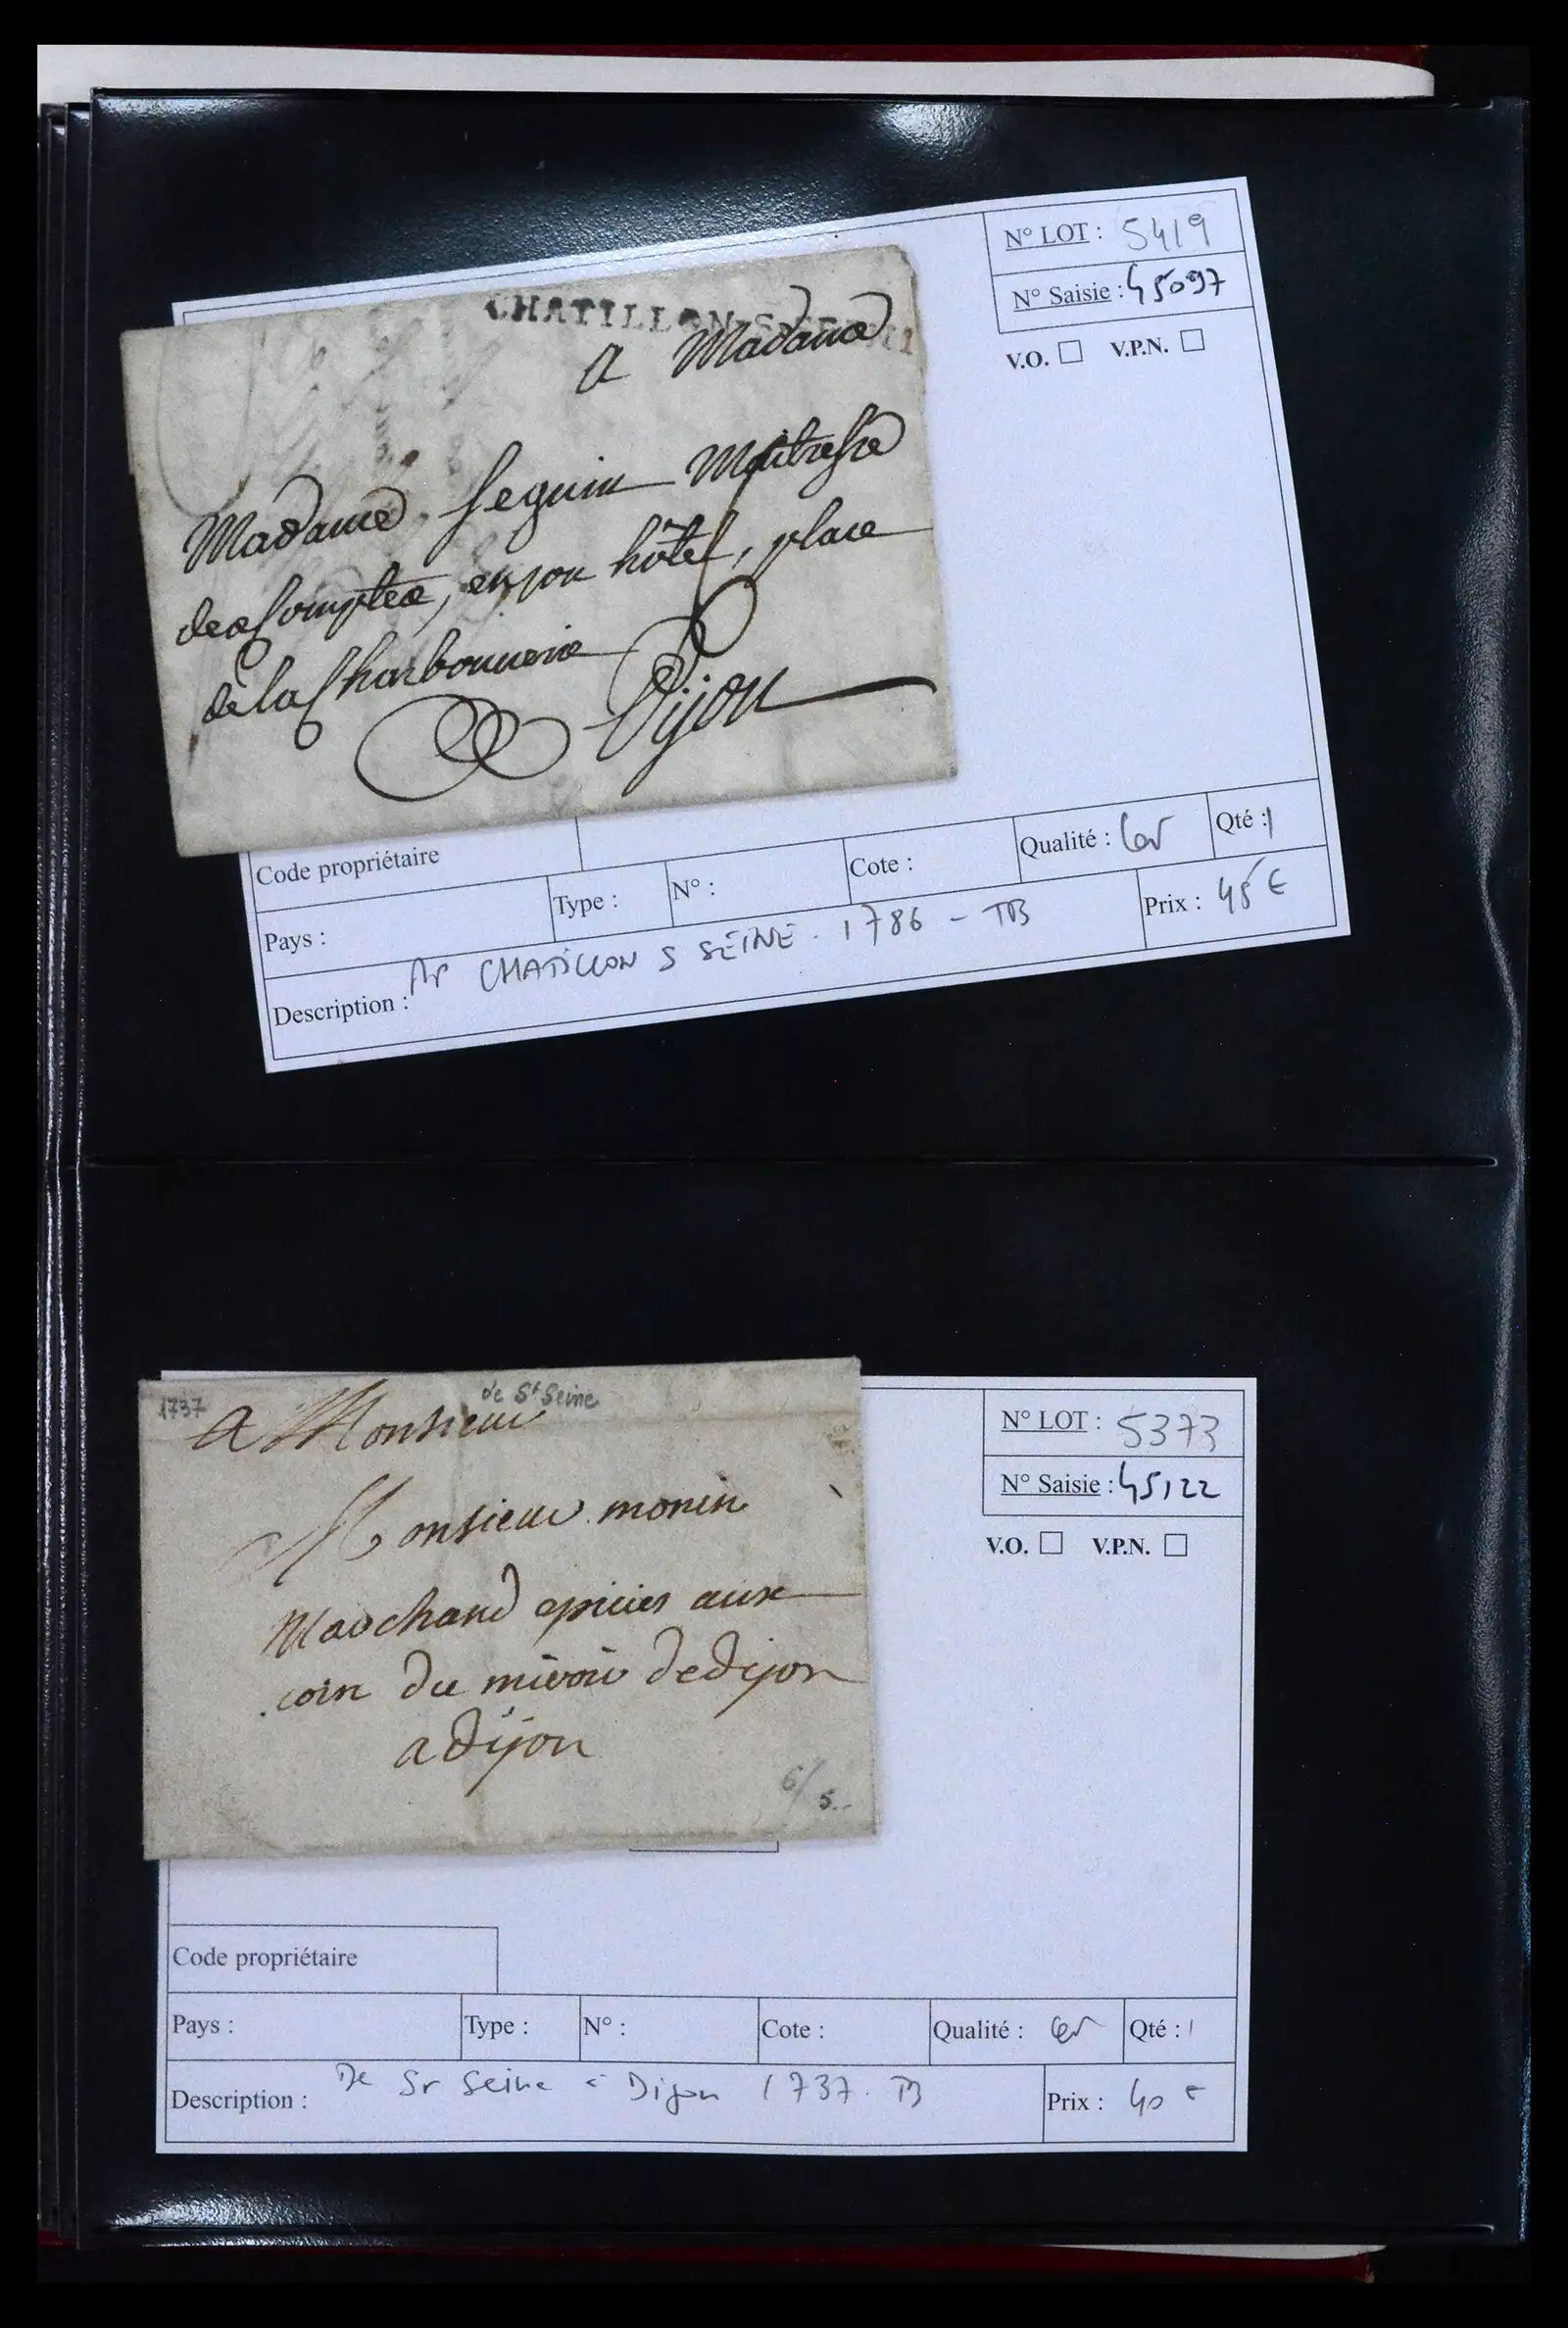 N° LOT : 5419
N° Saisie : 45097
V.O. V.P.N.
CHATILLON-S-SEINE
A Madame
Madame Seguin Maitresse
des Comptes, en son hôtel, place
de la Charbonnerie
Dijon
Code propriétaire
Pays :
Type :
N° :
Cote :
Qualité :
Qté : 1
Description : CHATILLON S SEINE. 1786 - TB
Prix : 45 €
1737
de St Seine
A Monsieur
Monsieur monin
Marchand epicier aux
coin du miroir de dijon
a dijon
6/5
N° LOT : 5373
N° Saisie : 45122
V.O. V.P.N.
Code propriétaire
Pays :
Type :
N° :
Cote :
Qualité :
Qté : 1
Description : De St Seine à Dijon 1737. TB
Prix : 40 €